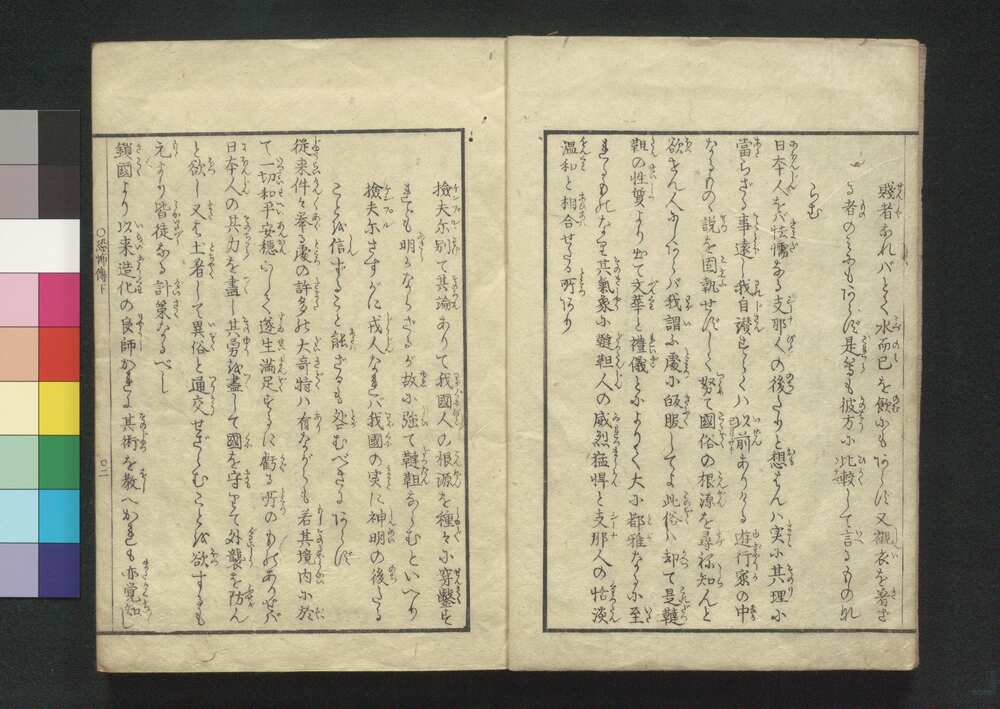 賤者あれバとく水而已を飲にもあらず又襯衣を著ざ
る者のミにもあらず是等も彼方に比較して言るものな
らむ
日本人を怯懦なる支那人の後たりと想はんハ実に其理に
當らざる事遠し我自讃せらくハ以前ありける遊行家の中
なるものゝ説を固執せずして努て國俗の根源を尋祢知んと
欲せん人にしあらバ我謂ふ處に皈服してよ此俗ハ却て是韃
靼の性質より出て文華と禮儀とによりて大に都雅なるに至
れるものなり其氣象に韃靼人の威烈猛悍と支那人の恬淡
温和と相合せたる所あり
撿夫尓別て其論ありて我國人の根源を種々に穿鑿す
れども明かならざるが故に強て韃靼ならむといへり
撿夫尓さすがに戎人なれバ我國の実に神明の後たる
ことを信ずること能ざるも咎むべきにあらず
従来件々挙る處の許多の大奇特ハ有ながらも若其境内に於
て一切和平安穏にして遂生満足するに虧る所のものあらバ
日本人の其力を盡し其勇を盡して國を守りて外襲を防ん
と欲し又は土着して異俗と通交せざらむことを欲するも
元より皆徒なる計策なるべし
鎖國より以来造化の良師かれに其術を教へかれも亦覚知し
〇恐怖傳下
〇二